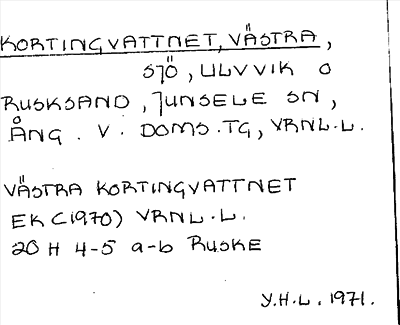 KORTINGVATTNET, VÄSTRA,
SJÖ, ULVVIK O
RUSKSAND, JUNSELE SN,
ÅNG. V. DOMS.TG, VRNL.L.
VÄSTRA KORTINGVATTNET
EK (1970) VRNL.L.
20 H 4-5 a-b RUSKE
Y.H.L. 1971.